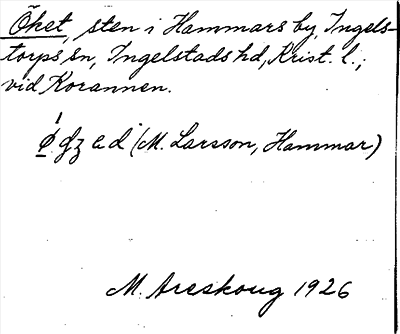 Öket, sten i Hammars by, Ingels-
torps sn, Ingelstads hd, Krist. l.;
vid Korannen.
(M. Larsson, Hammar)
M. Areskoug 1926